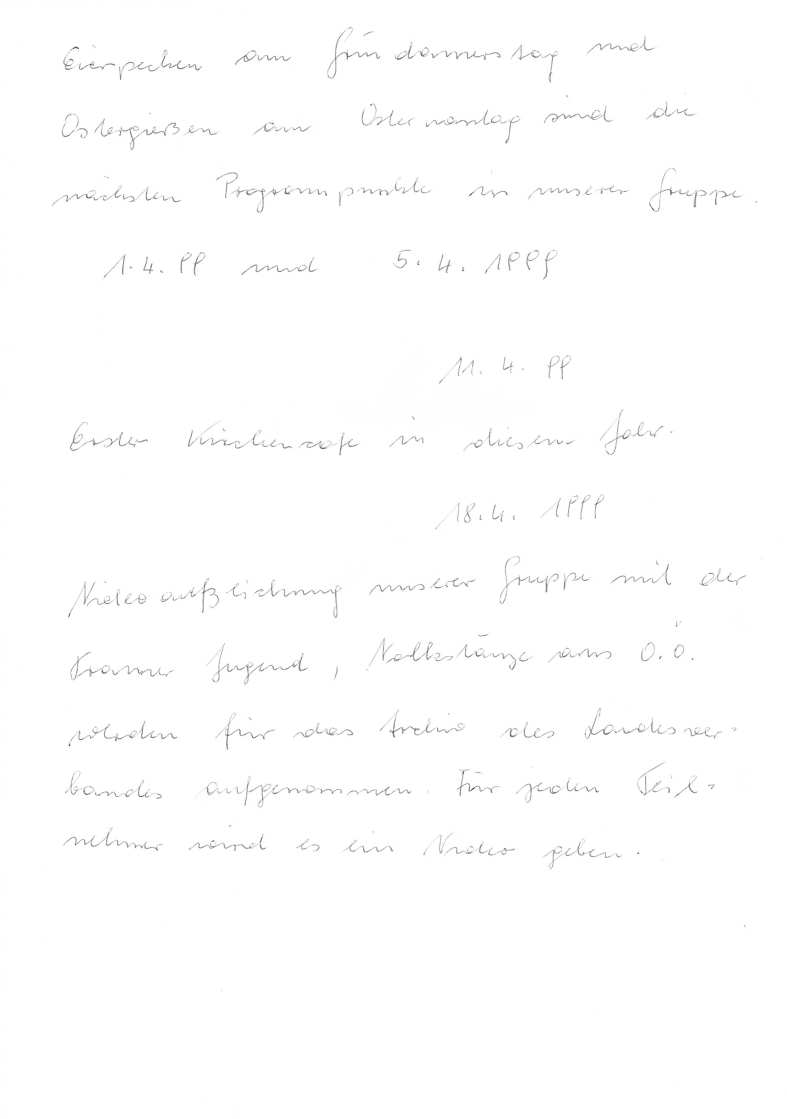 Eierpecken am Gründonnerstag und
Ostergießen am Ostermontag sind die
nächsten Programmpunkte in unserer Gruppe.
1.4.99 und 5.4.1999
11.4.99
Erster Kirchencafe in diesem Jahr.
18.4.1999
Videoaufzeichnung unserer Gruppe mit der
Jugend, Volkstänze aus O.Ö.
werden für das Archiv des Landesver-
bandes aufgenommen. Für jeden Teil-
nehmer wird es ein Video geben.